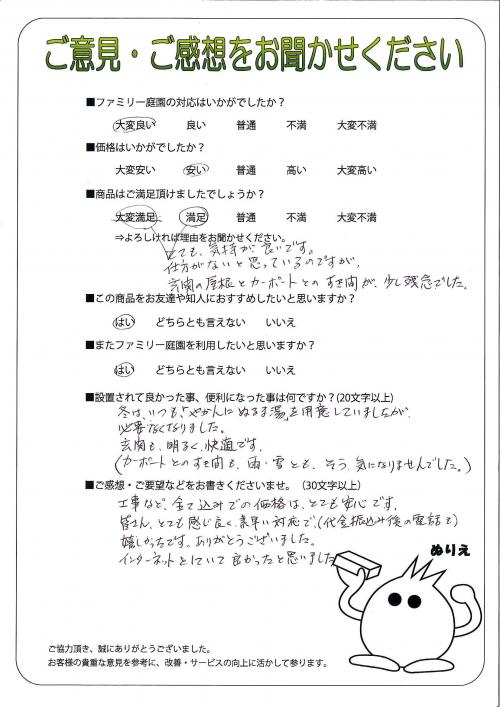 ご意見・ご感想をお聞かせください
■ファミリー庭園の対応はいかがでしたか？
大変良い　良い　普通　不満　大変不満
■価格はいかがでしたか？
大変安い　安い　普通　高い　大変高い
■商品はご満足頂けましたでしょうか？
大変満足　満足　普通　不満　大変不満
⇒よろしければ理由をお聞かせください。
とても、気持が良いです。
仕方がないと思っているのですが、
玄関の屋根とカーポートとのすき間が、少し残念でした。
■この商品をお友達や知人におすすめしたいと思いますか？
はい　どちらとも言えない　いいえ
■またファミリー庭園を利用したいと思いますか？
はい　どちらとも言えない　いいえ
■設置されて良かった事、便利になった事は何ですか？(20文字以上)
冬は、いつも「やかんにぬるま湯」を用意していましたが、
必要なくなりました。
玄関も、明るく、快適です。
(カーポートとのすき間も、雨・雪とも、そう、気になりませんでした。)
■ご感想・ご要望などをお書きくださいませ。（30文字以上）
工事など、全て込みでの価格は、とても安心です。
皆さん、とても感じ良く、素早い対応で、(代金振込み後の電話も)
嬉しかったです。ありがとうございました。
インターネットに　て良かったと思いました
ぬりえ
ご協力頂き、誠にありがとうございました。
お客様の貴重な意見を参考に、改善・サービスの向上に活かして参ります。